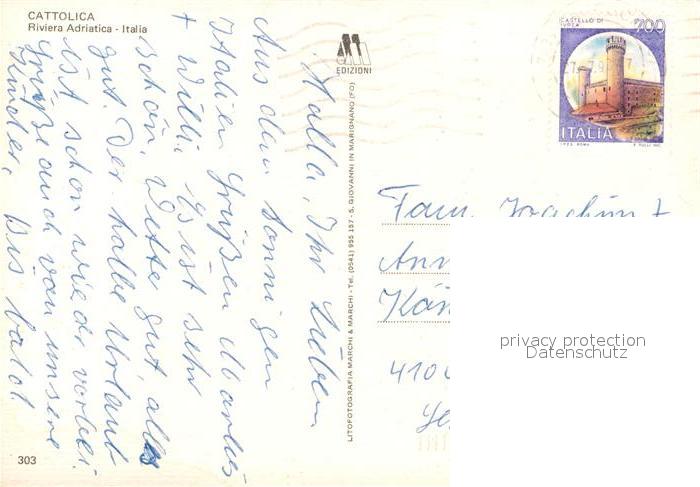 CATTOLICA
Riviera Adriatica - Italia
EDIZIONI
Hallo, Ihr Lieben
Aus dem sonnigen
Italien Grüßen Marlies
+ Willi. Es ist sehr
schön. Wette gut, alles
gut. Der halbe Urlaub
ist schon wieder vorbei.
Grüße auch von unsere
Kinder. Bis bald!
303
LITOFOTOGRAFIA MARCHI & MARCHI - Tel. (0541) 955 157 - S. GIOVANNI IN MARIGNANO (FO)
CASTELLO DI
IVREA
200
ITALIA
I.P.Z.S. ROMA
Fam. Joachim +
Ann
Kän
410
privacy protection
Datenschutz